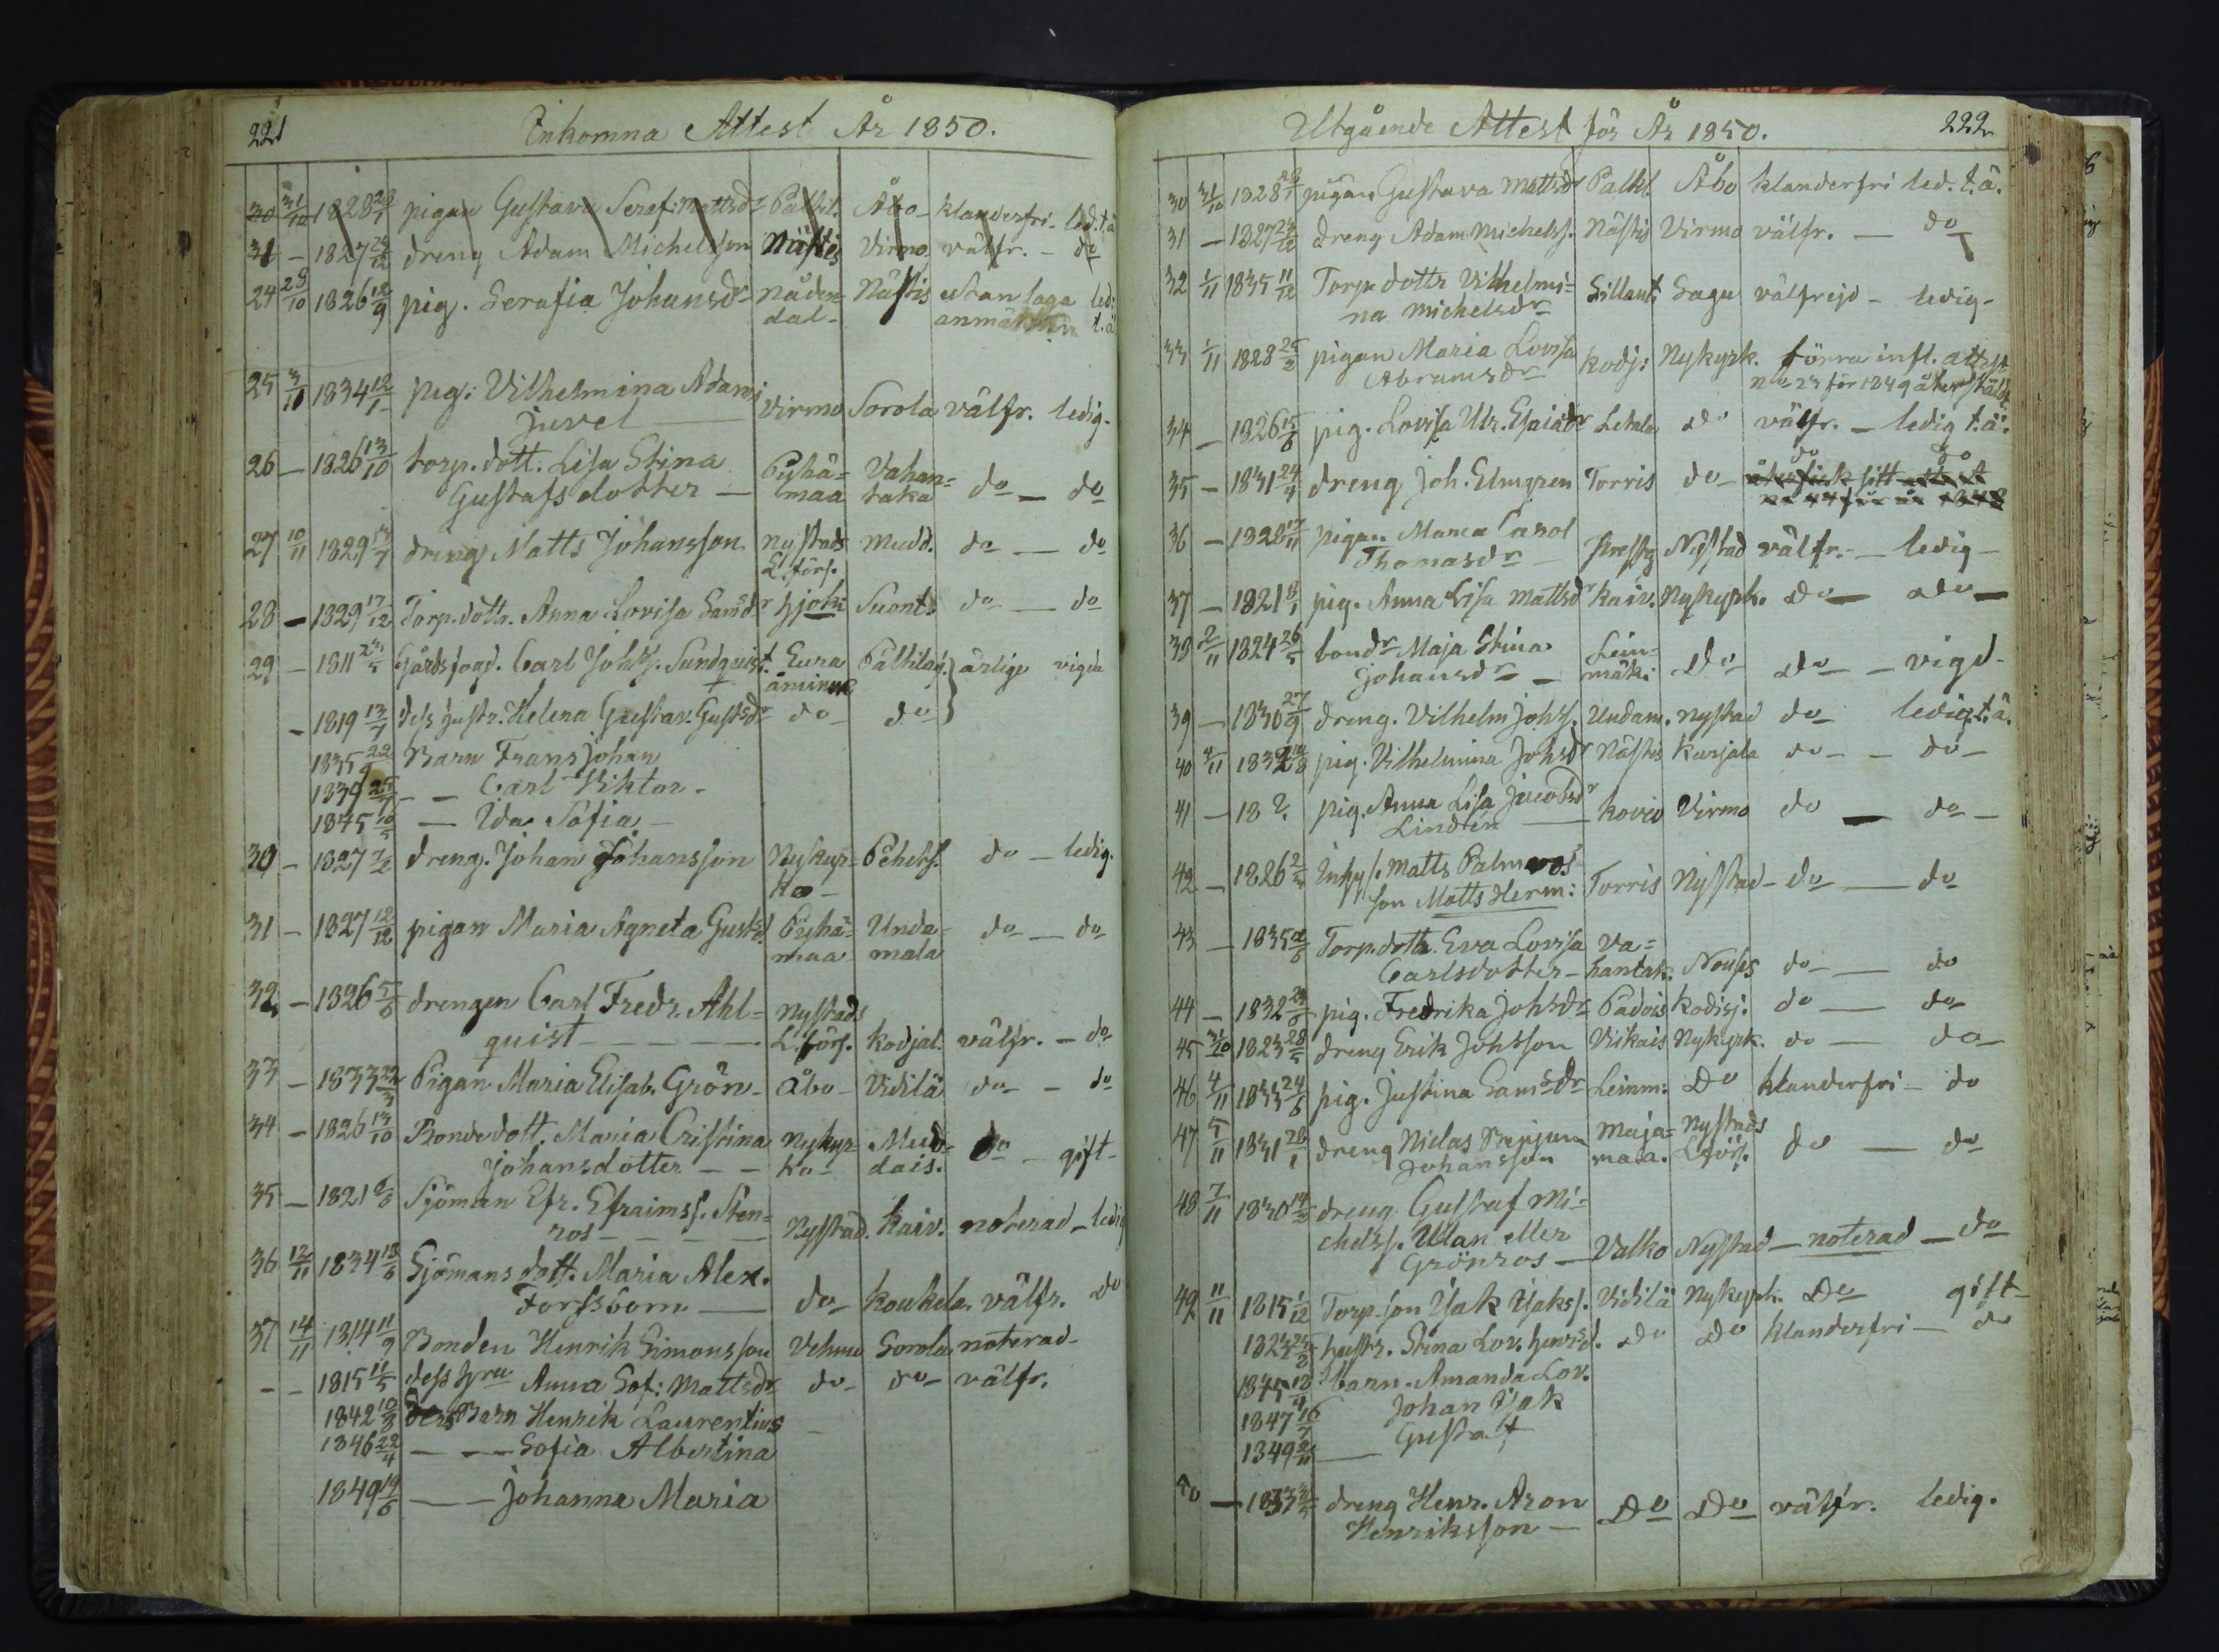 221
Inkomna Attest År 1850.
30 31/10 1828 28/7 pigan Gustava Seraf: Mattsdr Palkil. Åbo klanderfri. led. t.ä
31 – 1827 24/12 dreng Adam Michelsson Nästis Virmo välfr. – do
24 29/10 1826 12/9 pig. Serafia Johansdr Nåden= Nästis utan laga led:
dal – t.ä
25 3/11 1834 12/1 pig: Vilhelmina Adams Virmo Sorola välfr. ledig.
Juvel
26 – 1826 13/10 torp. dott. Lisa Stina Pyhä= Vahan=
Gustafsdotter – maa taka do – do
27 10/11 1829 17/7 dreng Matts Johansson Nystads Mudd. do – do
L. förs.
28 – 1829 17/12 Torp. dottr. Anna Lovisa Samsdr Hjohi Suont. do – do
29 – 1811 23/5 Gårdsfogd. Carl Johss. Sundquist. Eura Palkilad. ärlige vigda
åminne
– 1819 13/7 dess hustr. Helena Gustav. Gustsdr do do
1835 22/9 Barn Frans Johan
1839 25/7 – – Carl Viktor –
1845 10/5 – Ida Sofia –
30 – 1827 7/2 dreng. Johan Johansson Nykyr= Pehets. do – ledig.
ko –
31 – 1827 12/12 pigan Maria Agneta Gustsd. Pyhä= Unda= do – do
maa mala
32 – 1826 5/6 drengen Carl Fredr. Ahl= Nystads
quist – – – – L. förs. Kodjal. välfr. – do
33 – 1833 22/3 Pigan Maria Elisab. Grön – Åbo – Vidilä do – do
34 – 1826 13/10 Bondedott. Maria Cristina Nykyr= Mud=
Johansdotter – – ko – dais. do – gift –
35 – 1821 8/6 Sjöman Efr. Efraimss. Sten=
ros – – – – Nystad. Kaiv. noterad – ledig
36 12/11 1834 18/6 Sjömans dott. Maria Alex.
Forssbom – do – Koukela. välfr. do
37 14/11 1814 11/9 Bonden Henrik Simonsson Vehmo Sorola noterad –
– – 1815 11/5 dess hru Anna Sof: Mattsdr do – do – välfr.
1842 10/8 Barn Henrik Laurentius
1846 22/4 – – Sofia Albertina
1849 19/6 – – Johanna Maria
Utgående Attest för År 1850. 222
30 31/10 1828 28/7 pigan Gustava Mattsdr Palkl Åbo klanderfri led. t.ä.
31 – 1827 24/12 dreng Adam Michelss. Nästis Virmo välfr. – do
32 1/11 1835 11/12 Torp. dottr Vilhelmi= Sillant: Sagu välfrejd – ledig –
na Michelsdr
33 1/11 1828 25/2 pigan Maria Lovisa Kodj: Nykyrk. förra infl. attest
Abramsdr no 23 för 1849 återstäld.
34 – 1826 15/6 pig. Lovisa Ulr. Esaiadr Letala do välfr. – ledig t.ä.
do do
35 – 1831 24/4 dreng Joh. Elmgren Torris do – återfick sitt attest
no 44 för år 1848
36 – 1828 17/11 pigan Maria Carol
Thomasdr – Nystad välfr. – ledig –
37 – 1821 8/1 pig. Anna Lisa Mattsdr Kaiv. Nykyrk. do – do –
38 2/11 1824 26/5 bondr Maja Stina Lein=
Johansdr – mäki Do do – vigd –
39 – 1830 27/9 dreng. Vilhelm Johss. Undam. Nystad do ledig t.ä.
40 4/11 1832 18/8 pig. Vilhelmina Johsdr Nästis Karjala do – – do –
41 – 18 ? pig. Anna Lisa Jacobsdr
Lindten – Kovio Virmo do – do –
42 – 1826 2/4 Inhys. Matts Palmros
son Matts Herm: Torris Nystad – do – do
43 – 1835 2/6 Torp. dottr. Eva Lovisa Va=
Carlsdotter – hantak. Nousis do – do
44 – 1832 29/6 pig. Fredrika Johsdr Padois Kodisj: do – do
45 31/10 1823 28/5 dreng Erik Johsson Vikais Nykyrk. do – do –
46 4/11 1833 24/6 pig. Justina Samsdr Leinm: Do klanderfri – do
47 5/11 1831 28/1 dreng Niclas Maja= Nystads
Johansson maa. L. förs. do – do
48 7/11 1830 14/3 dreng. Gustaf Mi=
chelss. Ulan eller
Grönros – Valko Nystad – noterad – do
49 11/11 1815 1/12 Torp. son Isak Isakss. Vidilä Nykyrk. Do gift –
1823 25/8 hustr. Stina Lov. Henrsd. do Do klanderfri – do
1845 18/4 barn. Amanda Lov.
1847 16/7 Johan Isak
1849 2/11 – Gustaf
50 – 1833 3/5 dreng Henr. Aron Do Do välfr. ledig.
Henriksson –